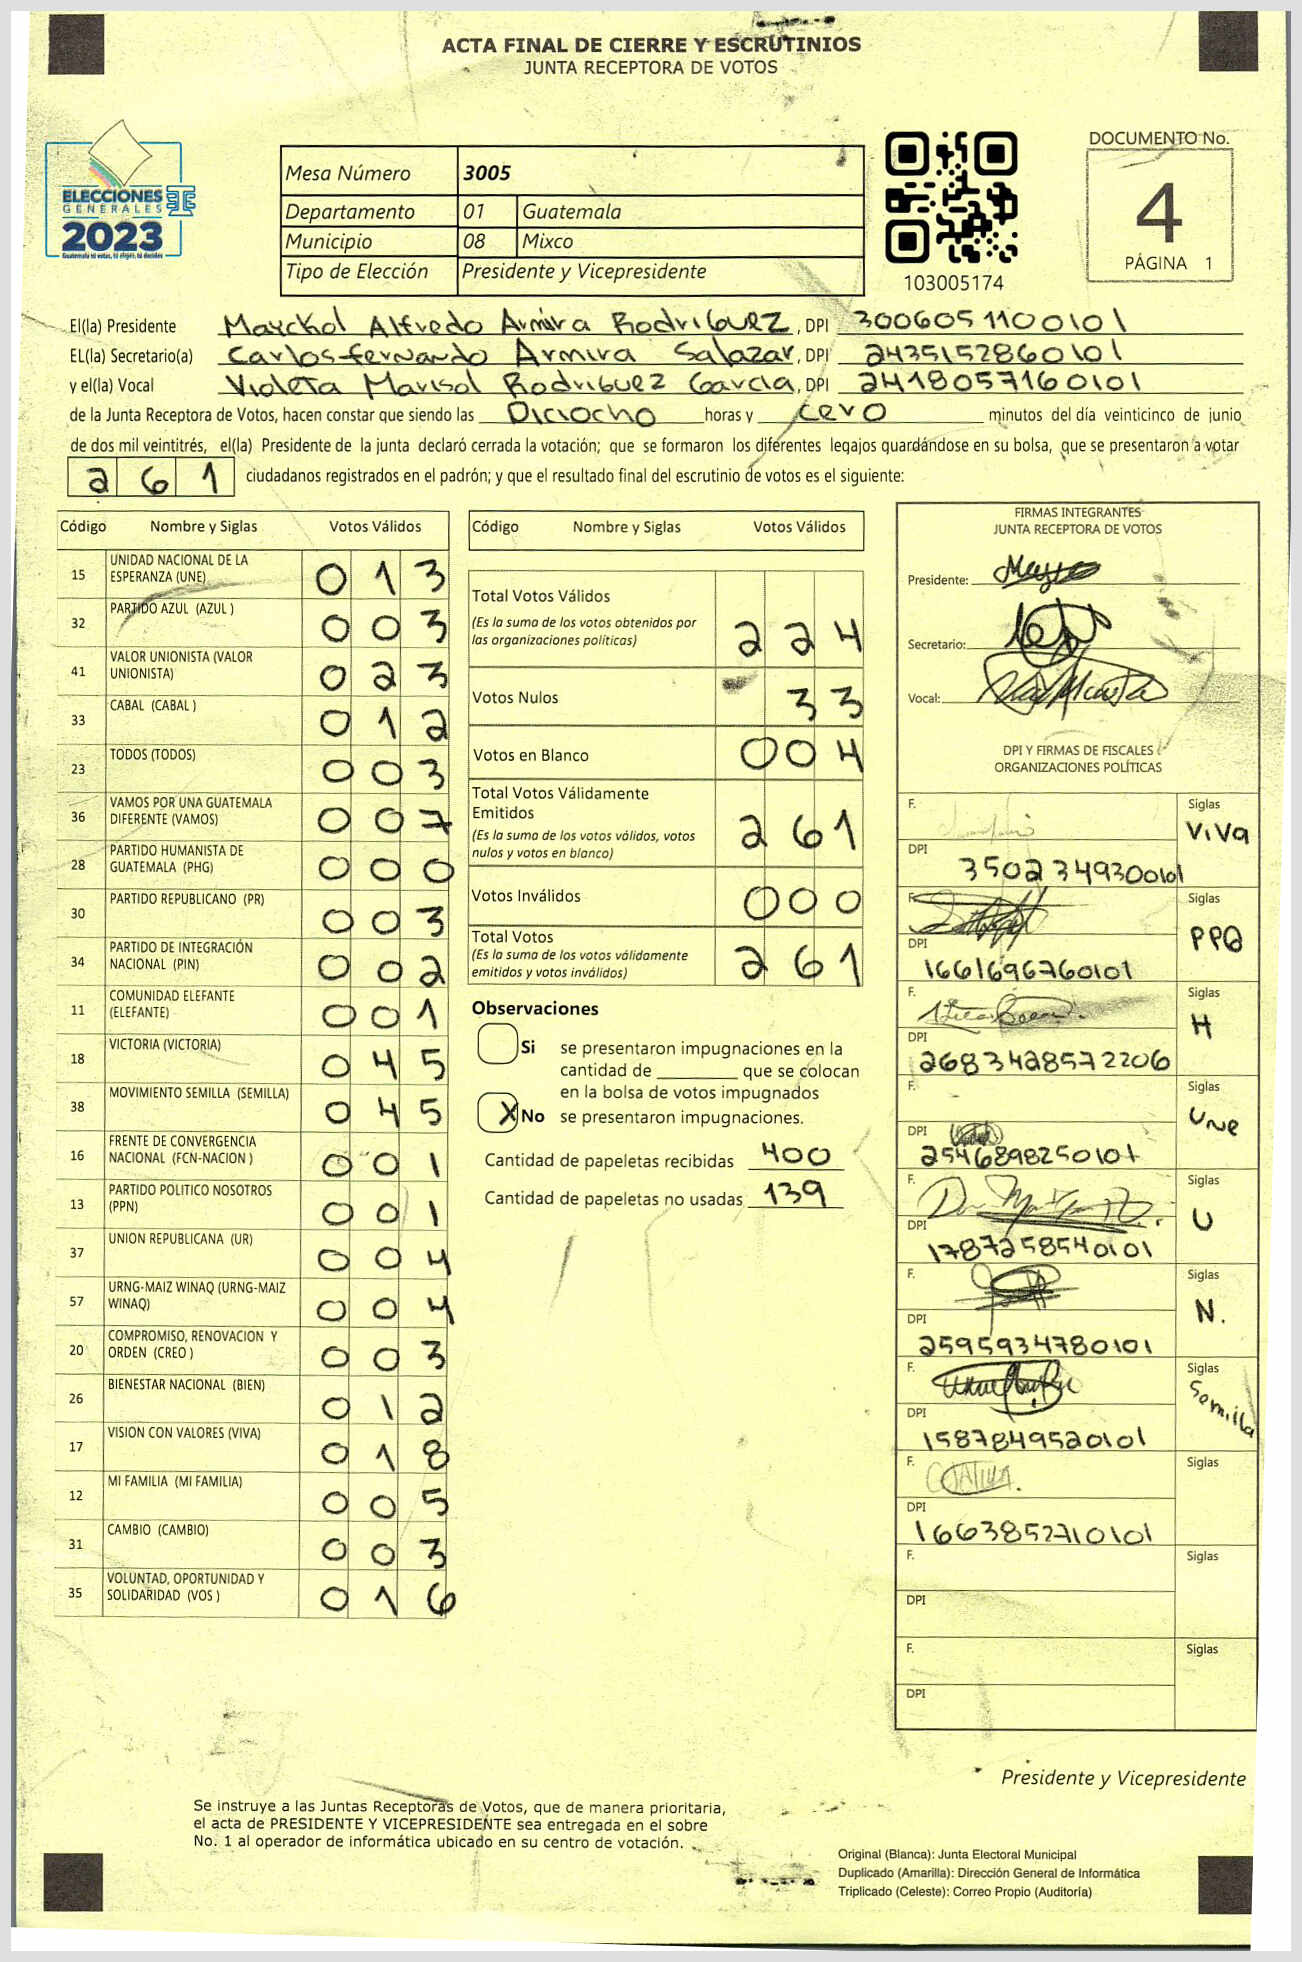 ACTA FINAL DE CIERRE Y ESCRUTINIOS
JUNTA RECEPTORA DE VOTOS
ELECCIONES
GENERALES
2023
Guatemala tú votas, tú eliges, tú decides
Mesa Número 3005
Departamento 01 Guatemala
Municipio 08 Mixco
Tipo de Elección Presidente y Vicepresidente
103005174
DOCUMENTO No.
4
PÁGINA 1
El(la) Presidente Marckol Alfredo Armira Rodriguez, DPI 3006051100101
EL(la) Secretario(a) Carlos fernando Armira Salazar, DPI 2435152860101
y el(la) Vocal Violeta Marisol Rodriguez Garcia, DPI 2418057160101
de la Junta Receptora de Votos, hacen constar que siendo las Diciocho horas y cero minutos del día veinticinco de junio
de dos mil veintitrés, el(la) Presidente de la junta declaró cerrada la votación; que se formaron los diferentes legajos guardándose en su bolsa, que se presentaron a votar
261 ciudadanos registrados en el padrón; y que el resultado final del escrutinio de votos es el siguiente:
Código Nombre y Siglas Votos Válidos
15 UNIDAD NACIONAL DE LA ESPERANZA (UNE) 013
32 PARTIDO AZUL (AZUL ) 003
41 VALOR UNIONISTA (VALOR UNIONISTA) 023
33 CABAL (CABAL ) 012
23 TODOS (TODOS) 003
36 VAMOS POR UNA GUATEMALA DIFERENTE (VAMOS) 007
28 PARTIDO HUMANISTA DE GUATEMALA (PHG) 000
30 PARTIDO REPUBLICANO (PR) 003
34 PARTIDO DE INTEGRACIÓN NACIONAL (PIN) 002
11 COMUNIDAD ELEFANTE (ELEFANTE) 001
18 VICTORIA (VICTORIA) 045
38 MOVIMIENTO SEMILLA (SEMILLA) 045
16 FRENTE DE CONVERGENCIA NACIONAL (FCN-NACION ) 001
13 PARTIDO POLITICO NOSOTROS (PPN) 001
37 UNION REPUBLICANA (UR) 004
57 URNG-MAIZ WINAQ (URNG-MAIZ WINAQ) 004
20 COMPROMISO, RENOVACION Y ORDEN (CREO ) 003
26 BIENESTAR NACIONAL (BIEN) 012
17 VISION CON VALORES (VIVA) 018
12 MI FAMILIA (MI FAMILIA) 005
31 CAMBIO (CAMBIO) 003
35 VOLUNTAD, OPORTUNIDAD Y SOLIDARIDAD (VOS ) 016
Código Nombre y Siglas Votos Válidos
Total Votos Válidos 224
(Es la suma de los votos obtenidos por
las organizaciones políticas)
Votos Nulos 33
Votos en Blanco 004
Total Votos Válidamente
Emitidos 261
(Es la suma de los votos válidos, votos
nulos y votos en blanco)
Votos Inválidos 000
Total Votos 261
(Es la suma de los votos válidamente
emitidos y votos inválidos)
Observaciones
Si se presentaron impugnaciones en la
cantidad de ________ que se colocan
en la bolsa de votos impugnados
X No se presentaron impugnaciones.
Cantidad de papeletas recibidas 400
Cantidad de papeletas no usadas 139
FIRMAS INTEGRANTES
JUNTA RECEPTORA DE VOTOS
Presidente:
Secretario:
Vocal:
DPI Y FIRMAS DE FISCALES
ORGANIZACIONES POLÍTICAS
F. Siglas VIVA
DPI 3502349300101
F. Siglas PPQ
DPI 1661696760101
F. Siglas H
DPI 2683428572206
F. Siglas UNe
DPI 2546898250101
F. Siglas U
DPI 1787258540101
F. Siglas N.
DPI 2595934780101
F. Siglas Semilla
DPI 1587849520101
F. Siglas
DPI 1663852710101
F. Siglas
DPI
F. Siglas
DPI
Presidente y Vicepresidente
Se instruye a las Juntas Receptoras de Votos, que de manera prioritaria,
el acta de PRESIDENTE Y VICEPRESIDENTE sea entregada en el sobre
No. 1 al operador de informática ubicado en su centro de votación.
Original (Blanca): Junta Electoral Municipal
Duplicado (Amarilla): Dirección General de Informática
Triplicado (Celeste): Correo Propio (Auditoría)